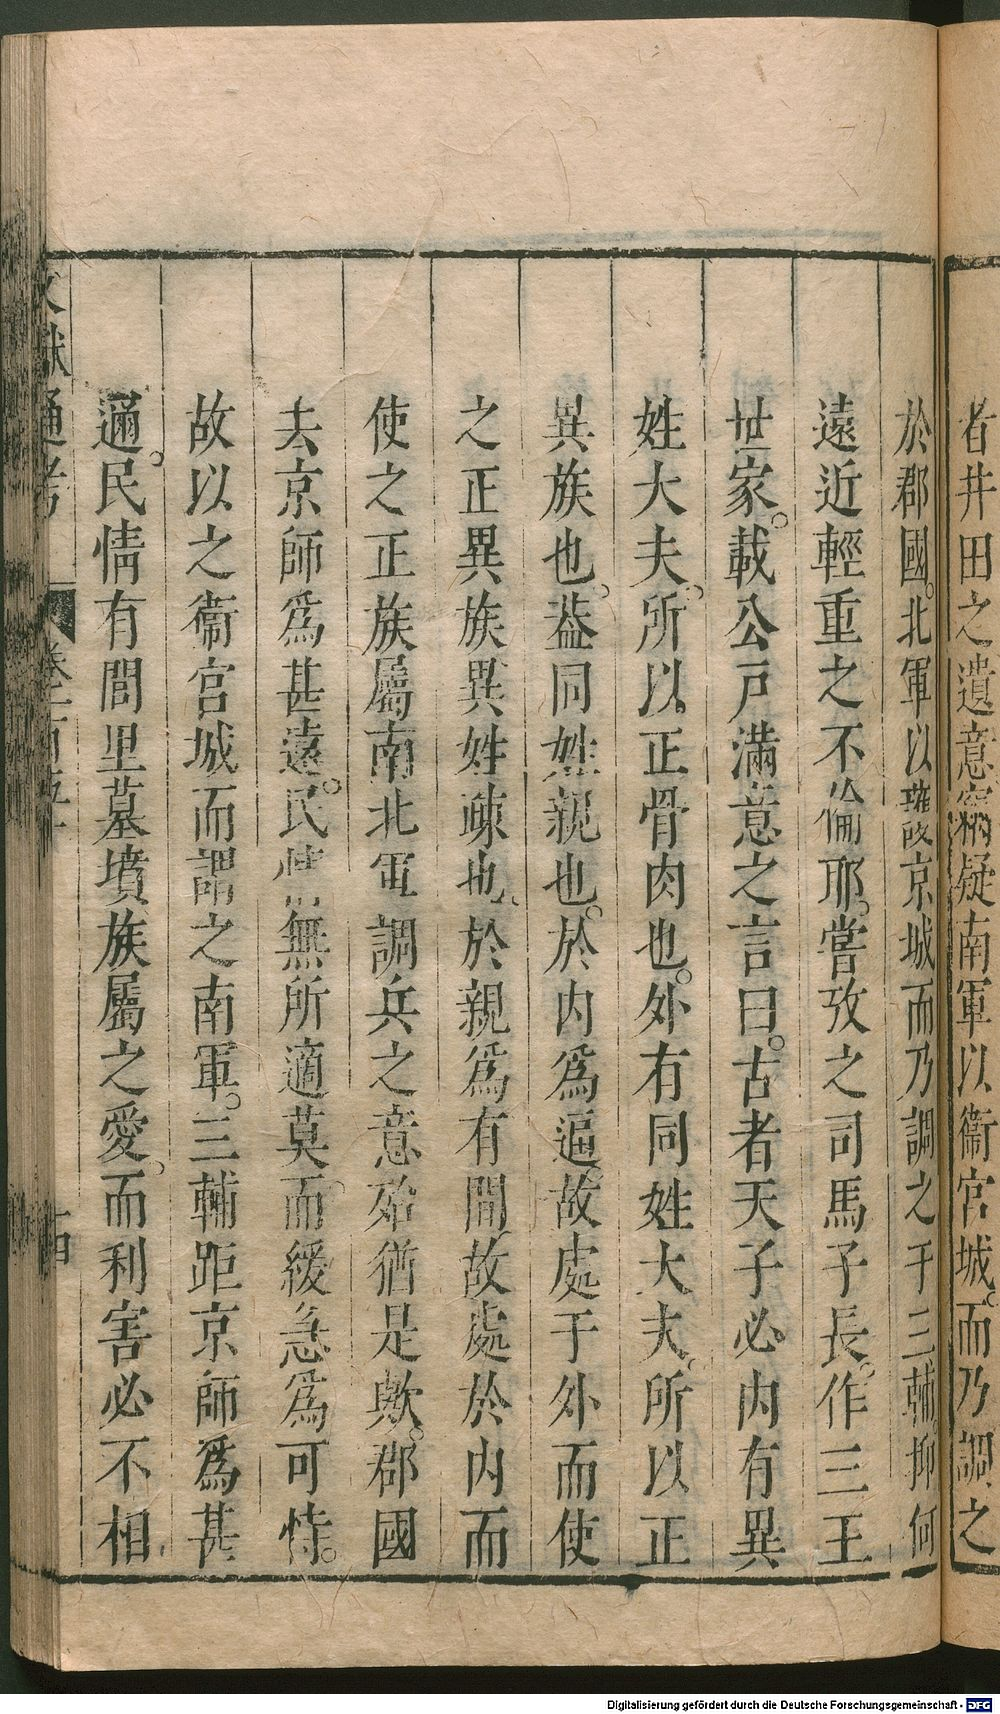 者井田之遺意竊疑南軍以衞宮城。而乃調之
於郡國。北軍以護京城而乃調之于三輔。抑何
遠近輕重之不倫耶。嘗攷之司馬子長。作三王
世家。載公戸滿意之言曰。古者天子必内有異
姓大夫。所以正骨肉也。外有同姓大夫。所以正
異族也。葢同姓親也。於内爲逼。故處于外而使
之正異族異姓疎也。於親爲有間故處於内而
使之正族屬南北軍調兵之意殆猶是歟。郡國
去京師爲甚遠。民情無所適莫。而緩急爲可恃。
故以之衞宮城而謂之南軍。三輔距京師爲甚
邇。民情有閭里墓墳族屬之愛。而利害必不相
文獻通考
卷一百五十
十四
Digitalisierung gefördert durch die Deutsche Forschungsgemeinschaft - DFG